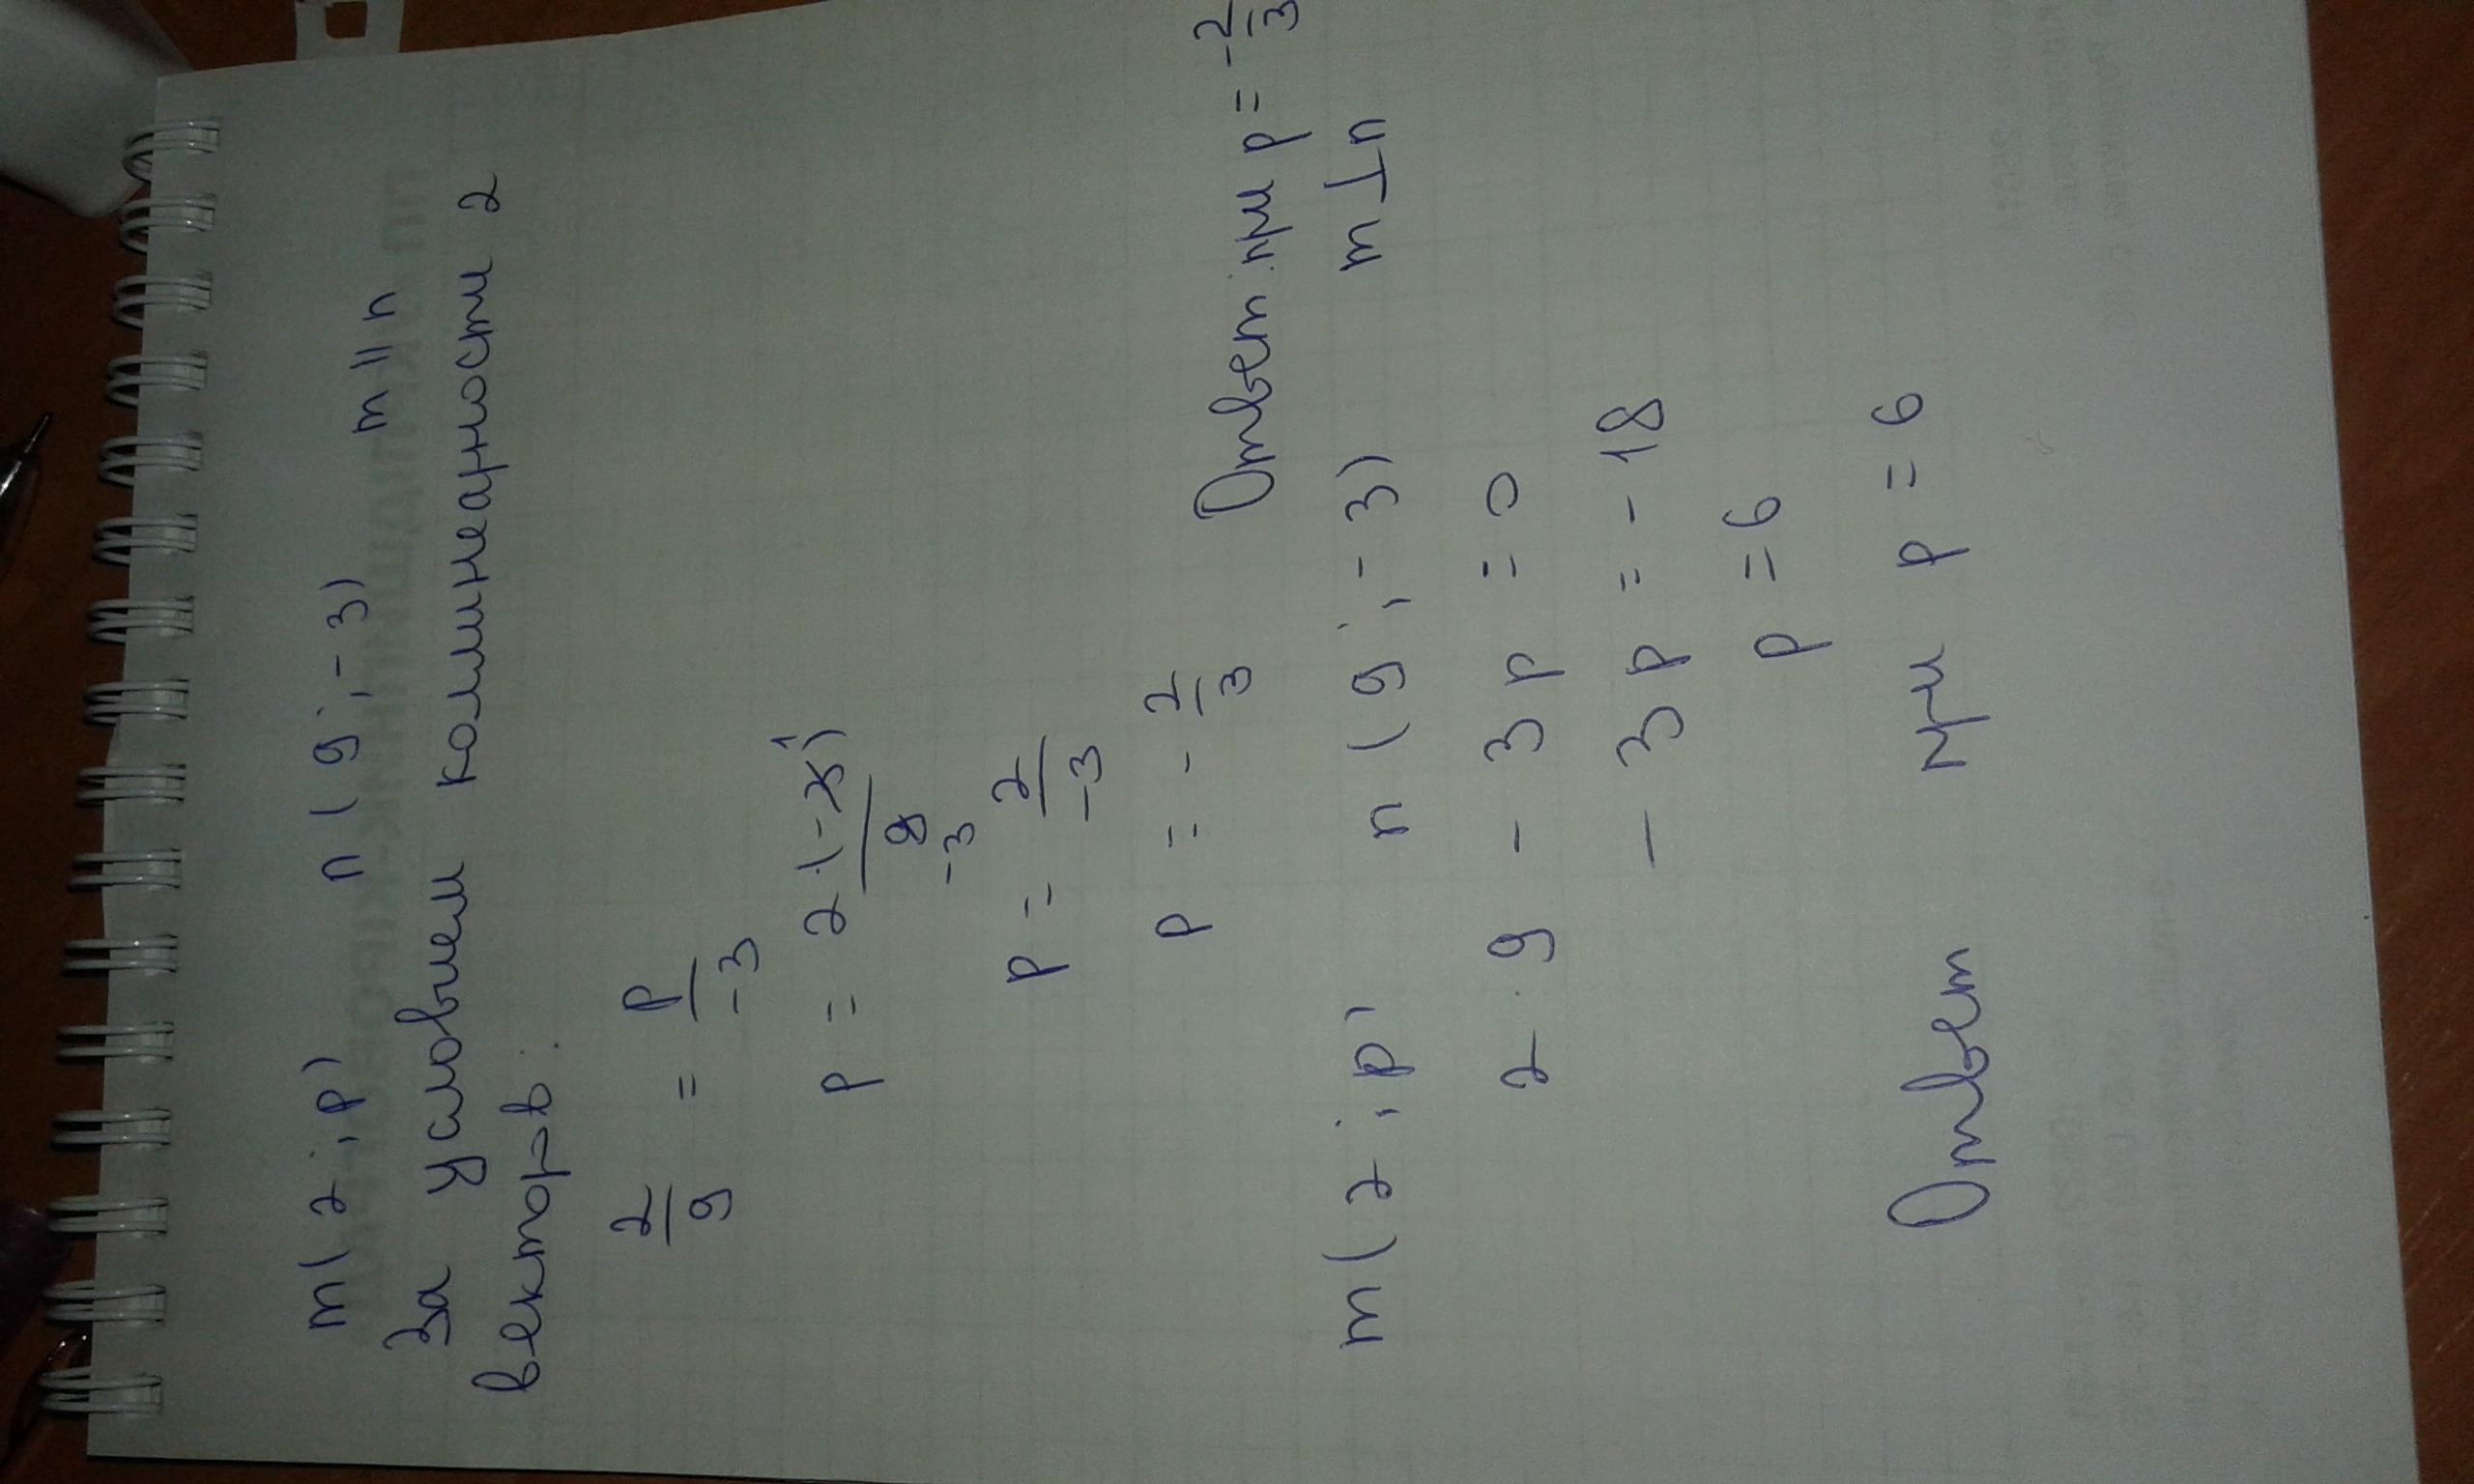 m(2;p) n(9;-3) m || n
За условием коллинеарности 2
векторов.
2/9 = p/-3
p = 2·(-3)¹/9 -3
p = 2/-3
p = - 2/3
Ответ: при p = -2/3
m(2;p) n(9;-3) m⊥n
2·9 - 3p = 0
-3p = -18
p = 6
Ответ при p = 6